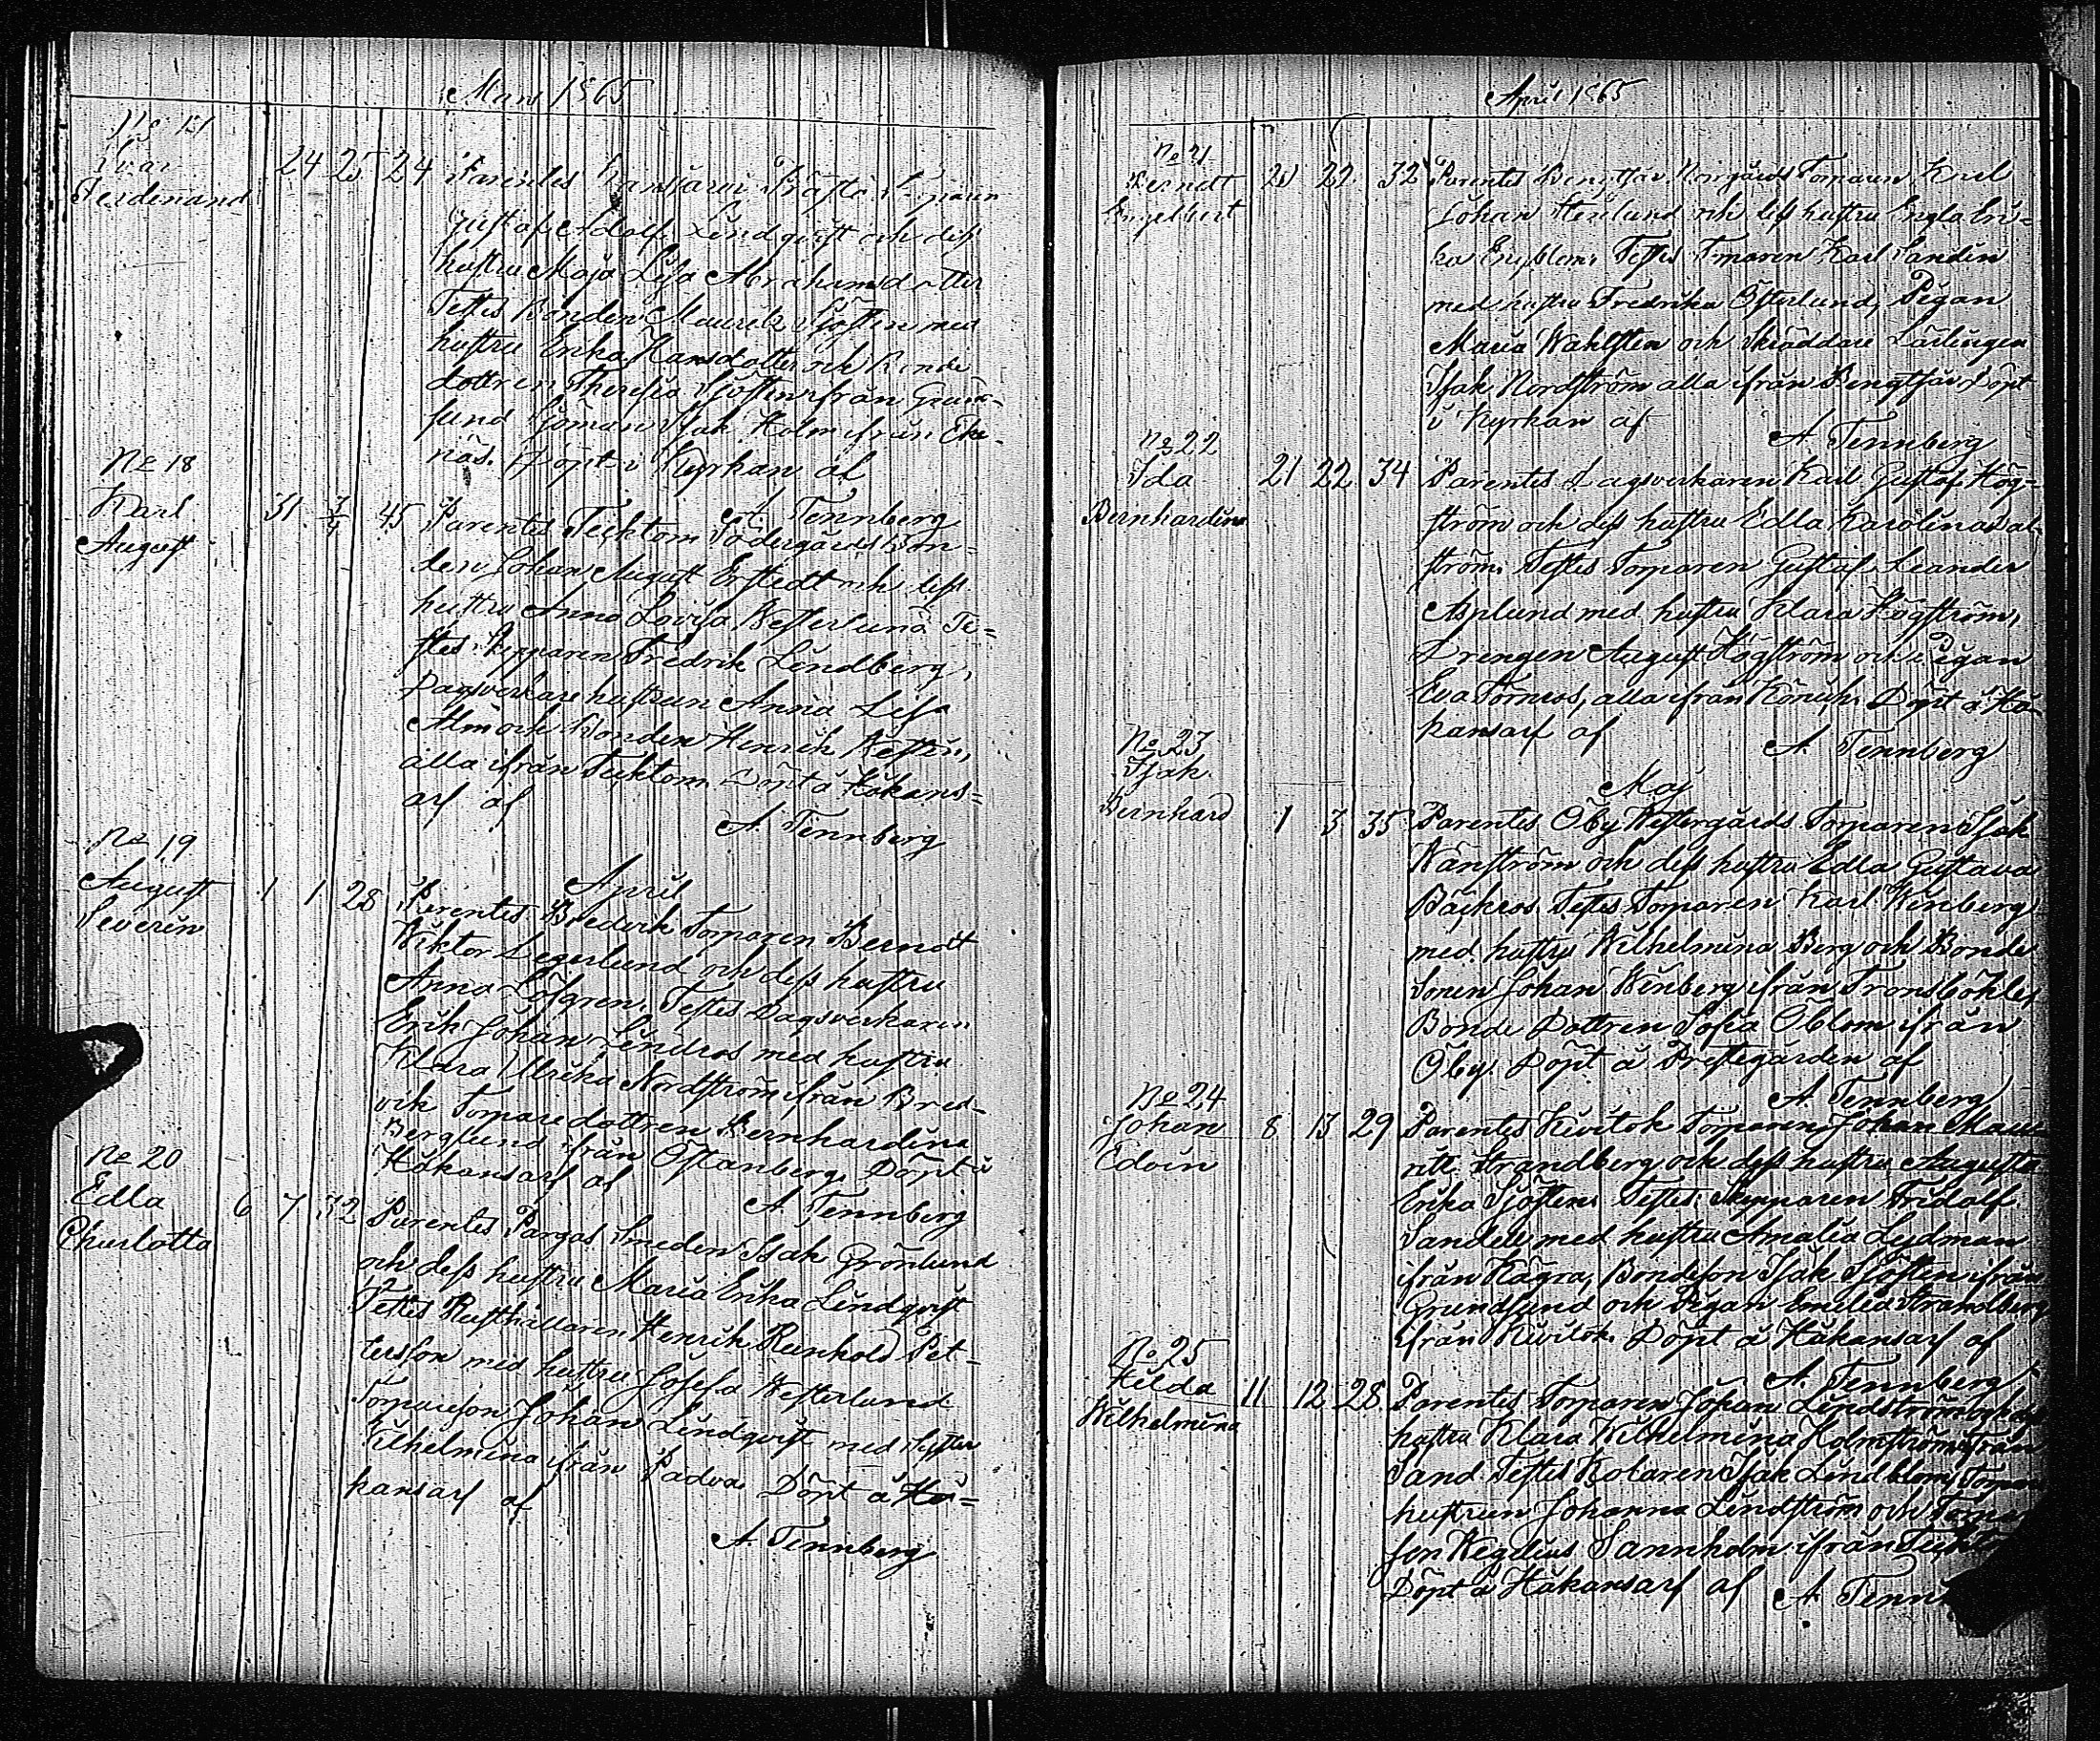 Mars 1865
No 17
Ivar
Ferdinand
24 25 24 Parentes
Gustaf Adolf Lindqvist och dess
hustru Maja Lisa Abrahamsdotter
Testes Bonden Maurits Sjösten med
hustru Erika Hansdotter och Bonde
dottren Theresia Sjösten ifrån Grund-
sund Sjöman Isak Holm ifrån Eke-
näs. Döpt i Kyrkan af
A Tennberg
No 18
Karl
August
31 3/4 45 Parentes Tecktom Södergårds Bon-
den Johan August Erstedt och dess
hustru Anna Lovisa Westerlund Te=
stes Skepparen Fredrik Lindberg,
Dagsverkare hustrun Anna Lisa
Alm och Bonden Henrik
alla ifrån Tecktom Döpt å Håkans=
arf af
A Tennberg
April
No 19
August
Severin
1 1 28 Parentes Bredvik Torparen Berndt
Wiktor Segerlund och dess hustru
Anna Löfgren, Testes Dagsverkaren
Erik Johan Lindros med hustru
Klara Ulrika Nordström ifrån Bred-
och Torparedottren Bernhardina
Berglund ifrån Östanberg Döpt å
Håkansarf af
A Tennberg
No 20
Edla
Charlotta
6 7 32 Parentes Pargas Smeden Isak Grönlund
och dess hustru Maria Erika Lindqvist
Testes Rusthållaren Henrik Reinhold Pet-
tersson med hustru Josefa Westerlund
Torpareson Johan Lindqvist med syster
Wilhelmina ifrån Padva Döpt å Hå=
kansarf af
A. Tennberg
April 1865
No 21
Berndt
Engelbert
21 22 32 Parentes Bengtsår Norrgårds Torparen Karl
Johan Stenlund och dess hustru Engla Eri=
ka Engblom. Testes Torparen Karl Sandin
med hustru Fredrika Österlund, Pigan
Maria Wahlsten och Skräddare Lärlingen
Isak Nordström alla ifrån Bengtsår Döpt
i Kyrkan af
A. Tennberg
No 22
Ida
Bernhardina
21 22 34 Parentes Dagsverkaren Karl Gustaf Hög=
ström och dess hustru Edla Karolina
ström. Testes Torparen Gustaf Leander
Asplund med hustru Klara Högström,
Drengen August Högström och Pigan
Eva Törnros, alla ifrån Döpt å Hå-
kansarf af
A. Tennberg
Maj
No 23
Isak
Bernhard
1 3 35 Parentes Öby Westergårds Torparen Isak
Wänström och dess hustru Edla Gustava
Bäckros Testes Torparen Karl Winberg
med hustru Wilhelmina Berg och Bonde
Sonen Johan Winberg ifrån Transböhle,
Bonde Dottren Sofia Öblom ifrån
Öby. Döpt å Prestegården af
A. Tennberg
No 24
Johan
Edvin
8 13 29 Parentes Kivitok Torparen Johan Mau-
ritz Strandberg och dess hustru Augusta
Erika Sjösten. Testes: Skepparen Fridolf
Sandell med hustru Amalia Lydman
ifrån Hägra, Bondeson Isak Sjösten ifrån
Grundsund och Pigan Emilia Strandberg
ifrån Kivitok. Döpt å Håkansarf af
A. Tennberg
No 25
Hilda
Wilhelmina
11 12 28 Parentes Torparen Johan Lindström och dess
hustru Klara Wilhelmina Holmström ifrån
Sand Testes Kolaren Isak Lindblom, Torpare
hustrun Johanna Lindström och Torpare
son Sannholm ifrån Teckt
Döpt å Håkansarf af A Tenn